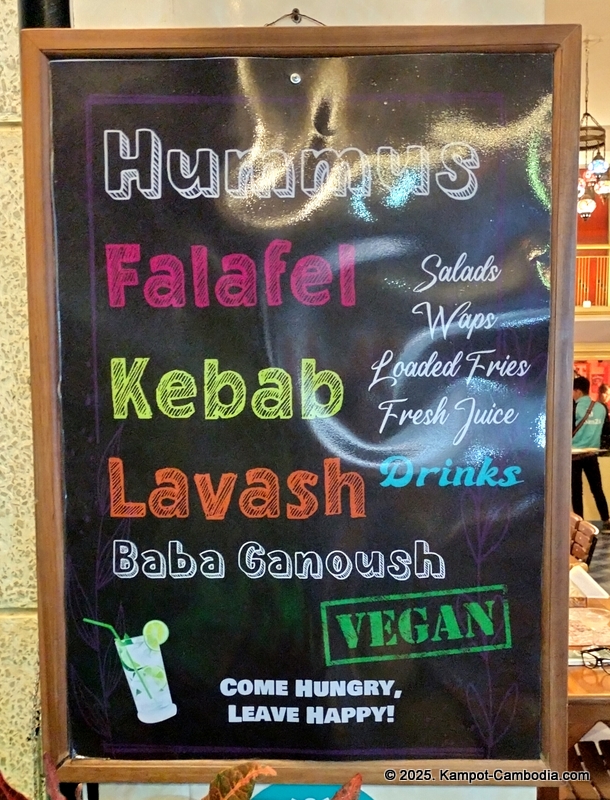 Hummus
Falafel
Kebab
Lavash
Baba Ganoush
Salads
Waps
Loaded Fries
Fresh Juice
Drinks
VEGAN
COME HUNGRY,
LEAVE HAPPY!
© 2025. Kampot-Cambodia.com